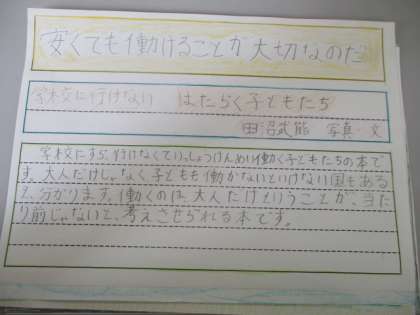 安くても働けることが大切なのだ
学校に行けない はたらく子どもたち
田沼武能 写真・文
学校にすら行けなくていっしょうけんめい働く子どもたちの本で
す。大人だけじゃなく子どもも働かないといけない国もある
と、分かります。働くのは大人だけということが、当た
り前じゃないと、考えさせられる本です。